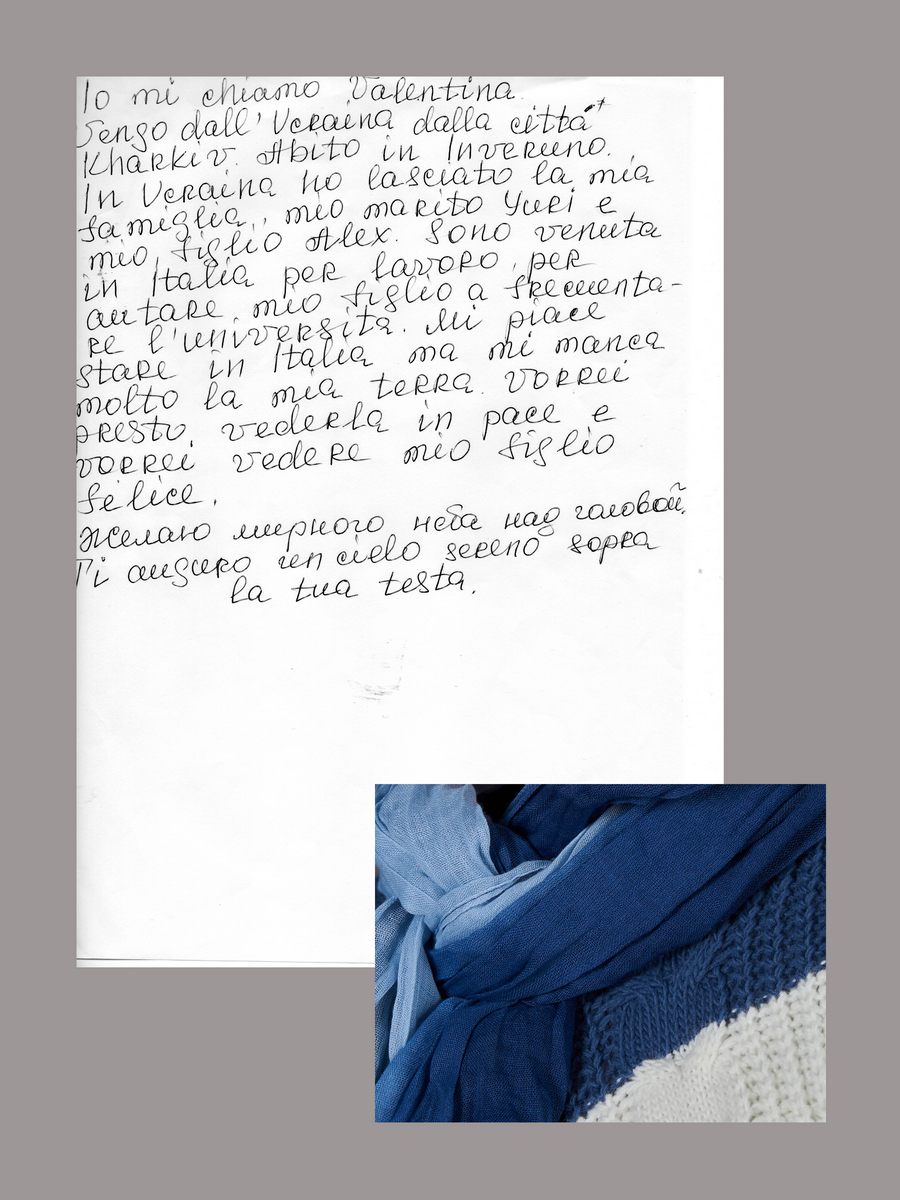 Io mi chiamo Valentina.
Vengo dall'Ucraina dalla città
Kharkiv. Abito in Inveruno.
In Ucraina ho lasciato la mia
famiglia, mio marito Yuri e
mio figlio Alex. Sono venuta
in Italia per lavoro, per
autare mio figlio a frecuenta-
re l'università. Mi piace
stare in Italia ma mi manca
molto la mia terra. Vorrei
presto vederla in pace e
vorrei vedere mio figlio
felice.
Желаю мирного неба над головой.
Ti auguro un cielo sereno sopra
la tua testa.